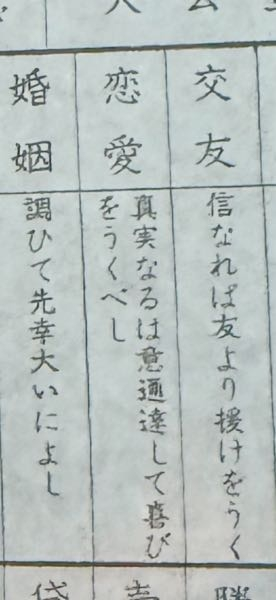 交友
信なれば友より援けをうく
恋愛
真実なるは意通達して喜び
をうくべし
婚姻
調ひて先幸大いによし